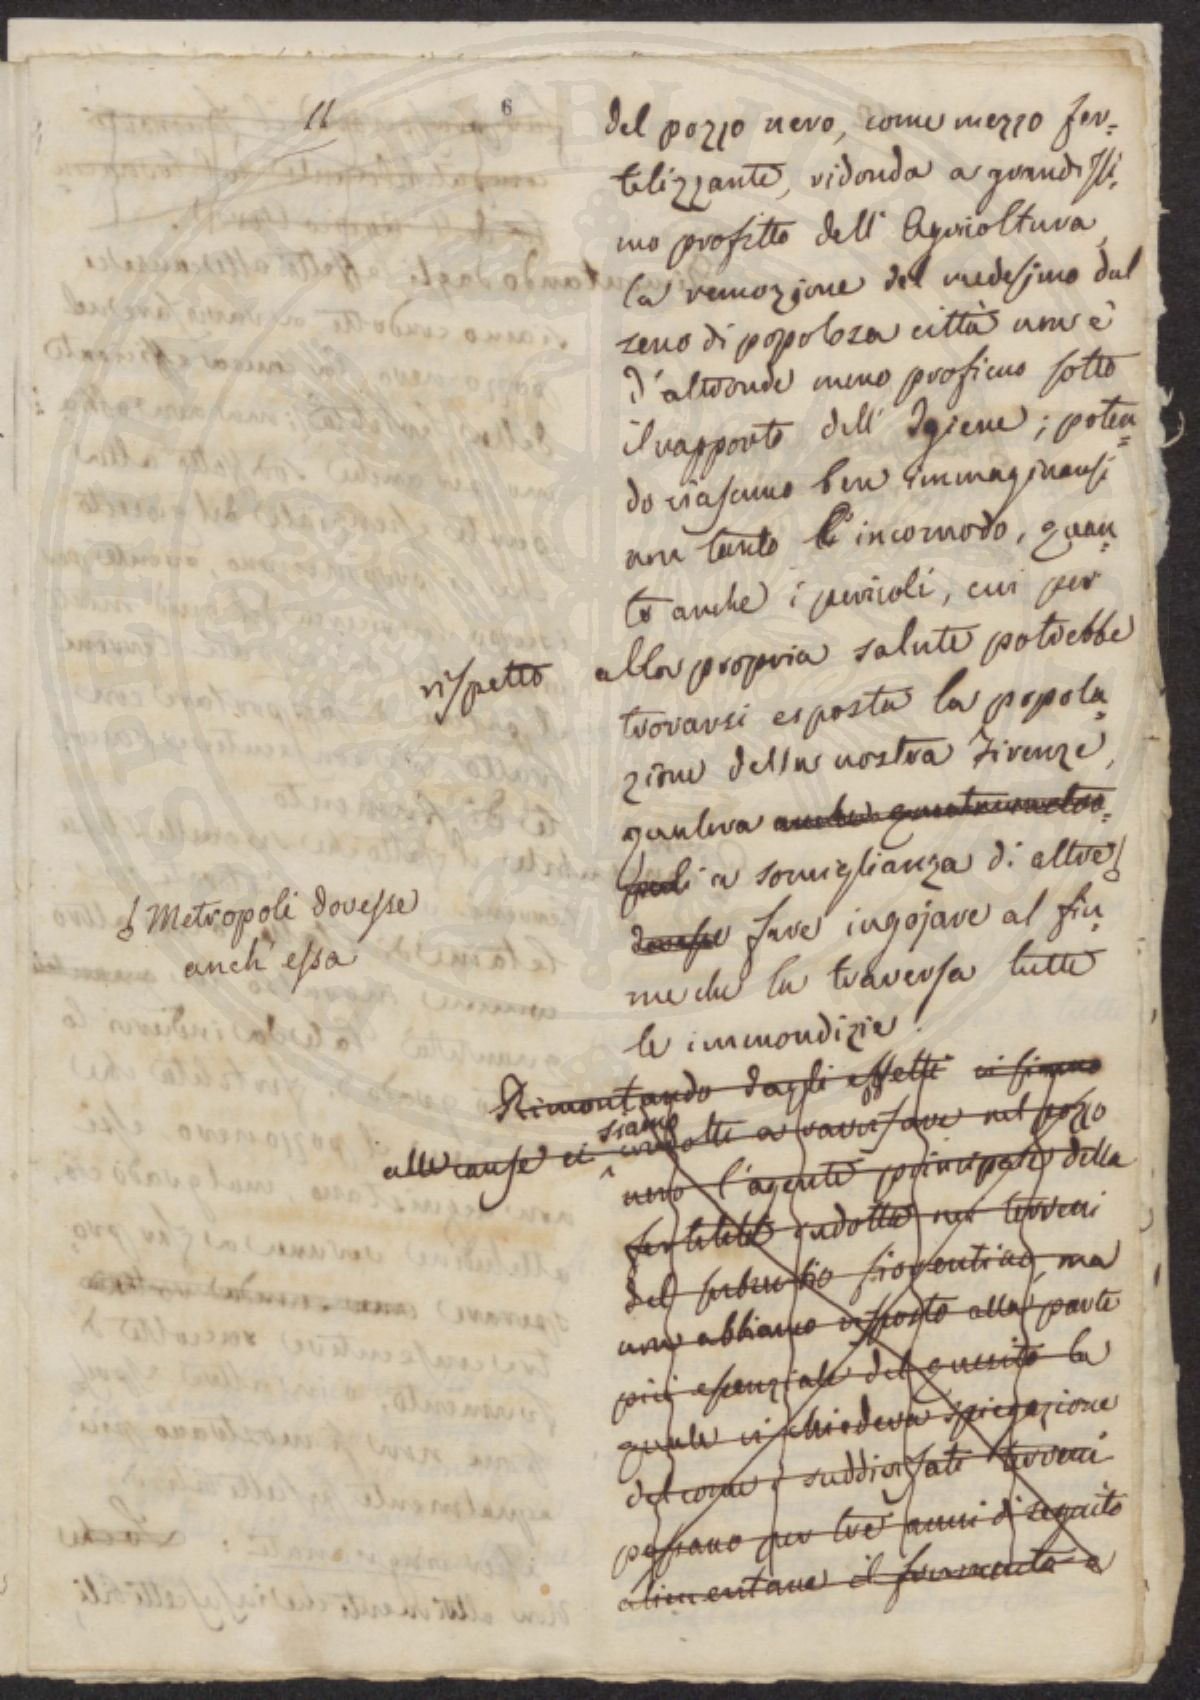 11
6
del pozzo nero, come mezzo fer=
tilizzante, ridonda a grandissi=
mo profitto dell' Agricoltura,
la remozione del medesimo dal
seno di popolosa città non è
d'altronde meno proficuo sotto
il rapporto dell' Igiene; poten=
do ciascuno ben immaginarsi
non tanto l'incomodo, quan=
to anche i pericoli, cui per
rispetto alla propria salute potrebbe
trovarsi esposta la popola=
zione della nostra Firenze,
qualora
a somiglianza di altre
Metropoli dovesse
anch' essa
dovesse fare ingojare al fiu=
me che la traversa tutte
le immondizie.
Rimontando dagli effetti ci siamo
alle cause ci siamo condotti a ravvisare nel pozzo
nero l'agente principale della
fertilità indotta nei terreni
del suburbio fiorentino, ma
non abbiamo risposto alla parte
più essenziale del quesito la
quale richiedeva spiegazione
del come i suddivisati terreni
possano per tre anni di seguito
alimentare il frumento a